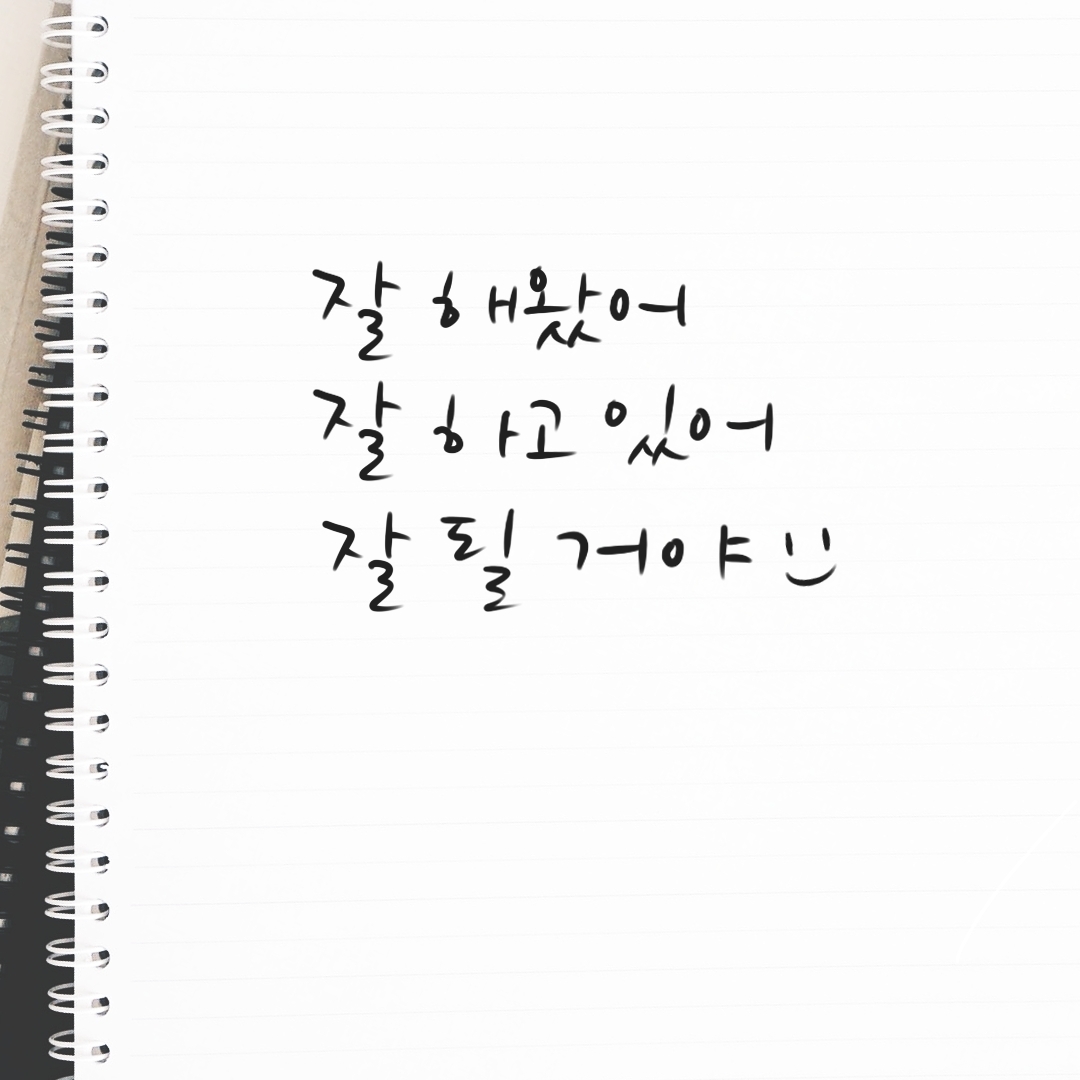 잘 해왔어
잘 하고 있어
잘 될 거야